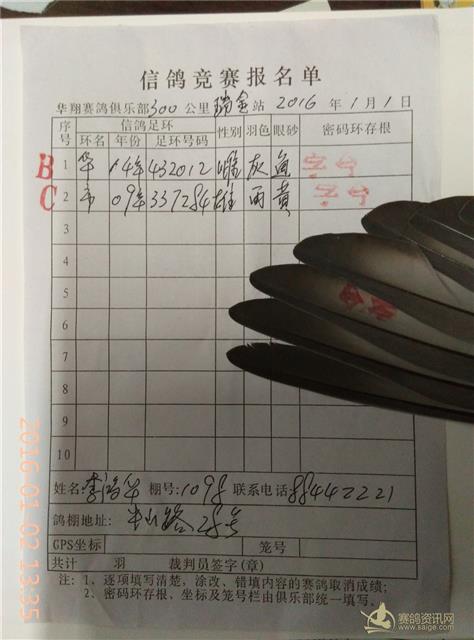 信鸽竞赛报名单
华翔赛鸽俱乐部300公里瑞金站 2016 年 1 月 1 日
序号 信鸽足环 性别 羽色 眼砂 密码环存根
环名 年份 足环号码
B 1 华 14年 432012 雌 灰 鱼 字号
C 2 市 09年 337284 雄 雨 黄 字号
3
4
5
6
7
8
9
10
姓名: 李 华 棚号:1098 联系电话:88442221
鸽棚地址: 半山路28号
GPS坐标 笼号
共计 羽 裁判员签字(章)
注: 1、逐项填写清楚，涂改、错填内容的赛鸽取消成绩；
2、密码环存根、坐标及笼号栏由俱乐部统一填写。
2016.01.02 13:35
赛鸽资讯网
www.saige.com